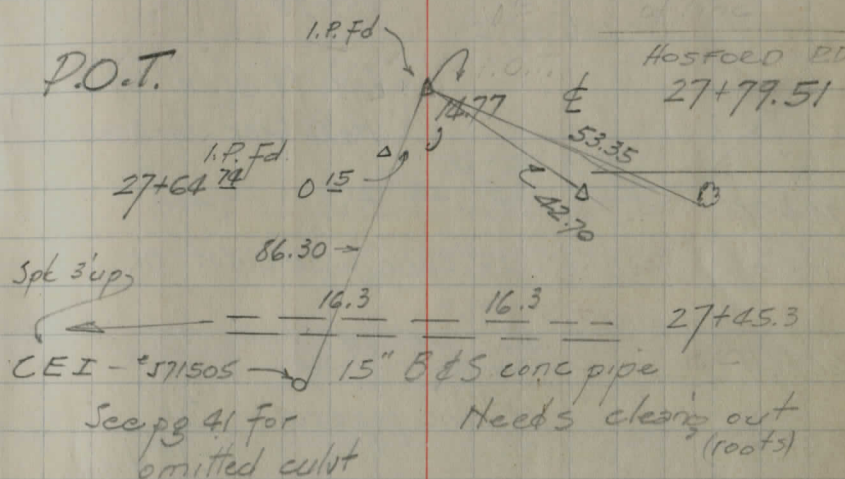 I.P. Fd
P.O.T.
HOSFORD RD
27+79.51
℄
14.77
53.35
I.P. Fd.
27+64 74
0 15
42.70
86.30
Spk 3' up
16.3 16.3
27+45.3
CEI - #571505
15" B&S conc pipe
See pg 41 for
omitted culvt
Needs cleang out
(roots)